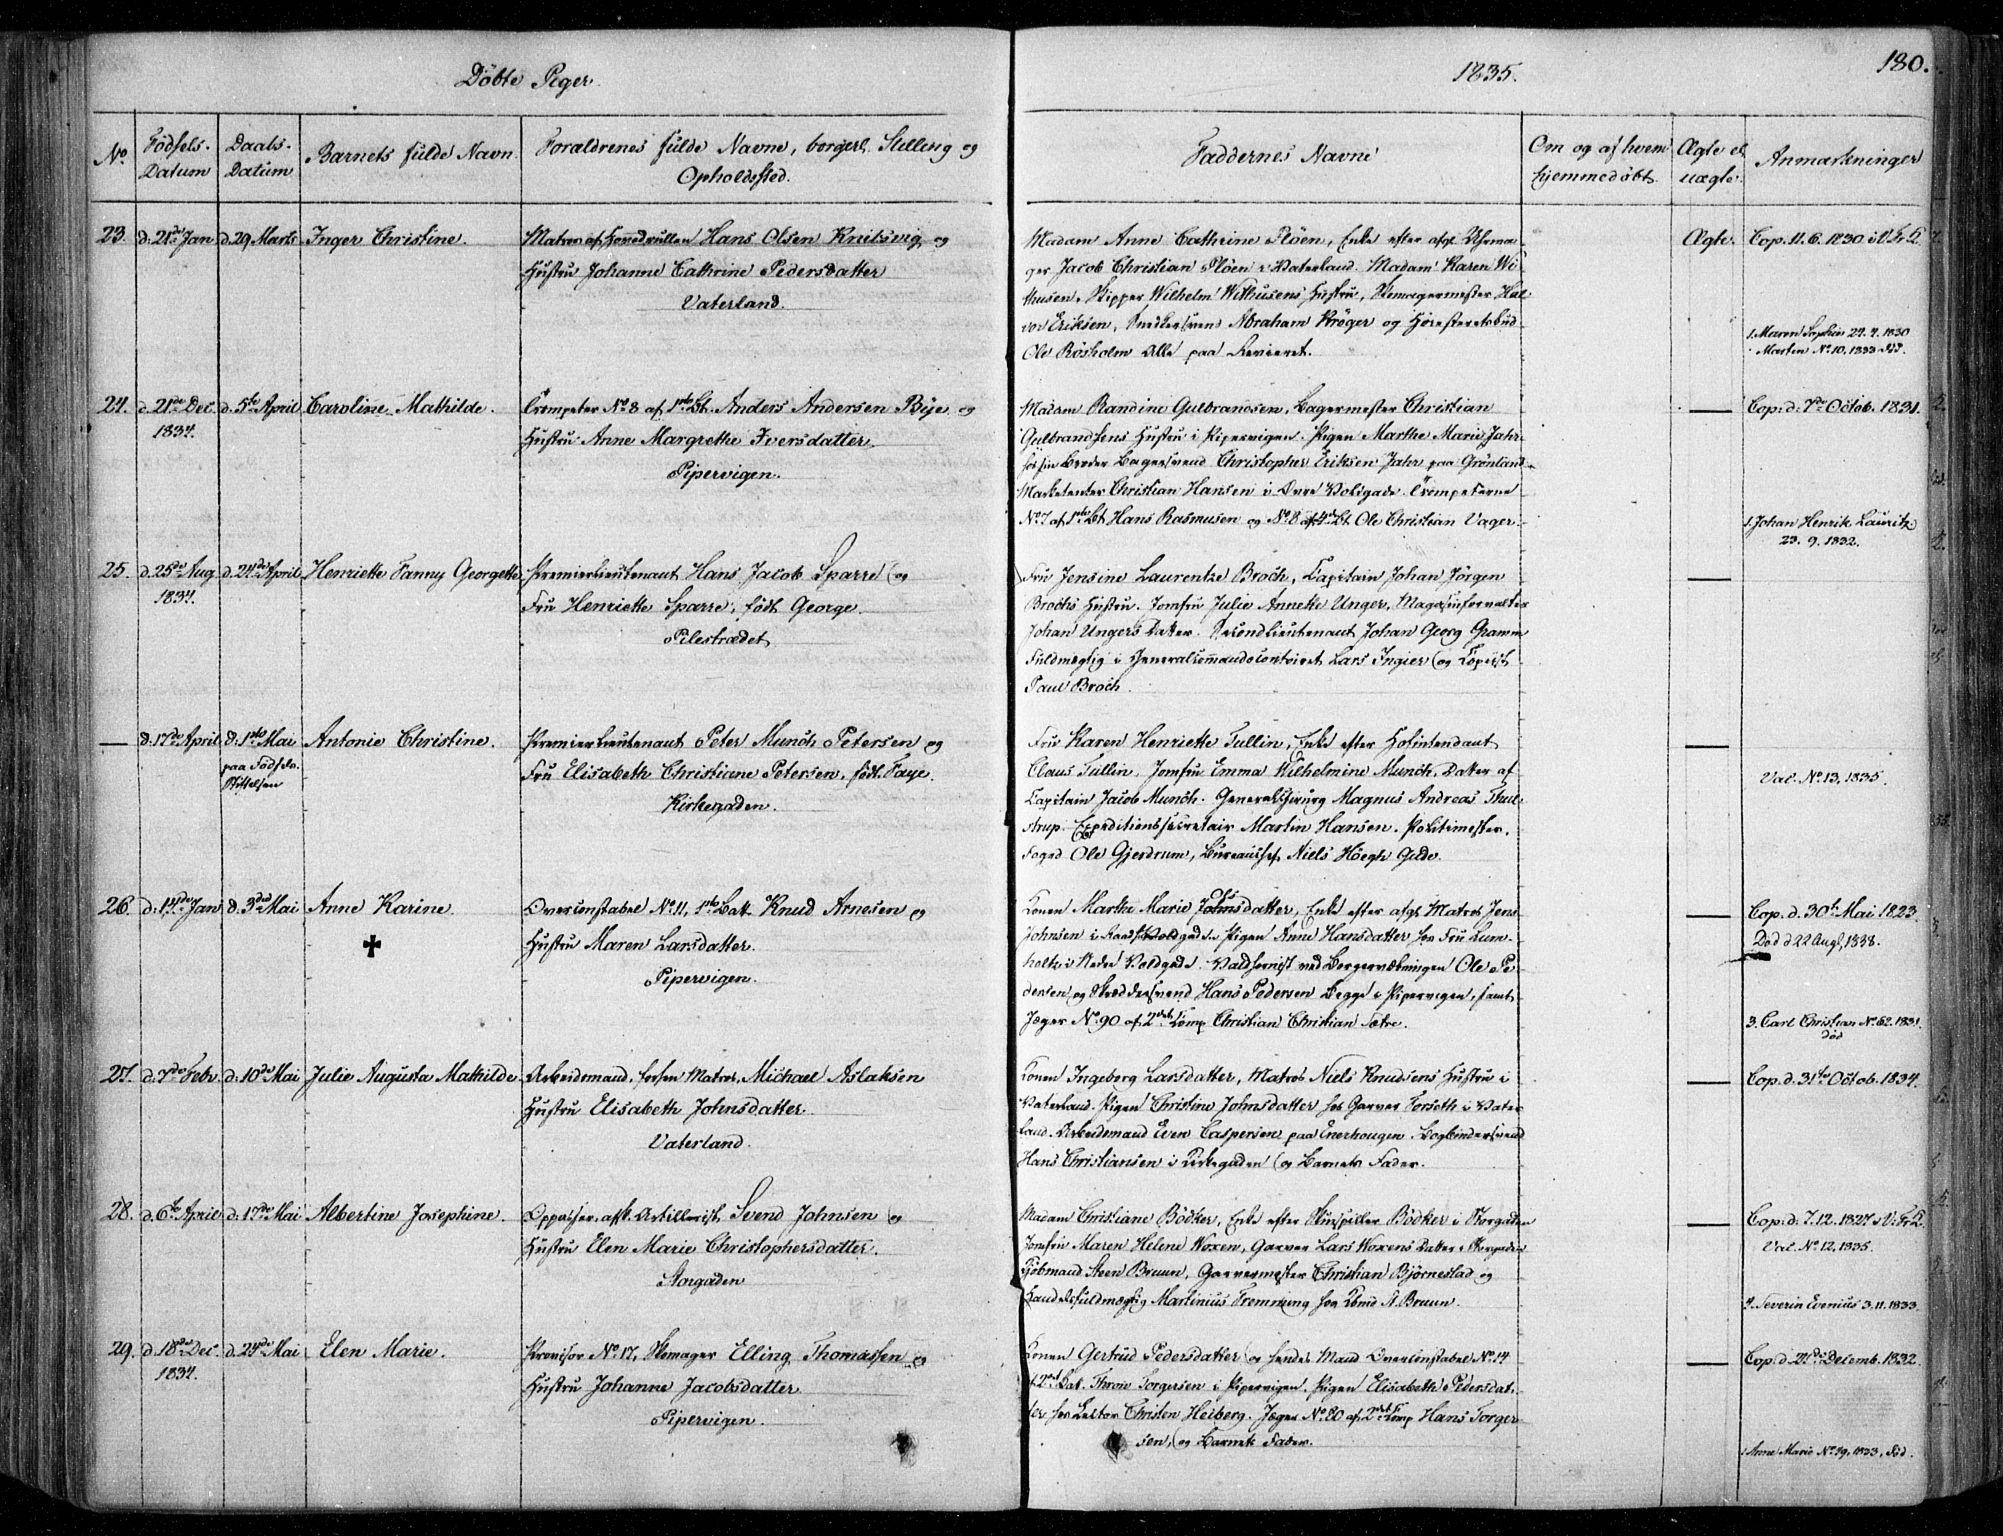 Döbte Piger.
1835.
180.
No
Födsels-
Datum
Daabs-
Datum
Barnets fulde Navn
Forældrenes fulde Navne, borgerl. Stilling og
Opholdssted.
Faddernes Navne
Om og af hvem
hjemmedöbt.
Ægte el.
uægte.
Anmærkninger
23. d. 21de Jan d. 29 Marts Inger Christine.
Matros af Hovedrullen Hans Olsen Knutsvig og
Hustru Johanne Cathrine Pedersdatter
Vaterland.
Madam Anne Cathrine Plöen, Enke efter afgl. Uhrma-
ger Jacob Christian Plöen i Vaterland. Madam Karen Wi-
thusen, Skipper Wilhelm Withusens Hustru, Skomagermester Hal-
vor Eriksen, Snedkersvend Abraham Kröger og Höiesteretsbud
Ole Rösholm Alle paa Revieret.
Ægte.
Cop. 11. 6. 1830 i V. Fr. K.
1. Maren Sophie 29. 4. 1830
Marten No. 10. 1833 död.
24. d. 21de Dec. d. 5te April Caroline Mathilde.
1834.
Trompeter No 8 af 1ste Bt. Anders Andersen Bye og
Hustru Anne Margrethe Iversdatter.
Pipervigen.
Madam Randine Gulbrandsen, Bagermester Christian
Gulbrandsens Hustru i Pipervigen. Pigen Marthe Marie Jahr
hos sin Broder Bagersvend Christopher Eriksen Jahr paa Grönland
Marketenter Christian Hansen i Övre Voldgade. Trompeterne
No 7 af 1ste Bt Hans Rasmusen og No 8 af 4de Bt Ole Christian Vager.
Cop. d. 7de Octob. 1831.
1. Johan Henrik Lauritz
23. 9. 1832.
25. d. 25de Aug d. 24de April Henriette Fanny Georgette
1834.
Premierlieutenant Hans Jacob Sparre og
Fru Henriette Sparre, födt George.
Pilestrædet
Fru Jensine Laurentze Broch, Capitain Johan Jörgen
Brochs Hustru. Jomfru Julie Annette Unger, Magasinforvalter
Johan Ungers Datter. Secondlieutenant Johan Georg Gramm
Fuldmægtig i Generalcommandocontoiret Lars Ingier og Copiist
Paul Broch.
— d. 17de April d. 1ste Mai Antonie Christine.
paa Födsels-
Stiftelsen
Premierlieutenant Peter Munch Petersen og
Fru Elisabeth Christiane Petersen, födt Faye.
Kirkegaden.
Fru Karen Henriette Tullin, Enke efter Hofintendant
Claus Tullin. Jomfru Emma Wilhelmine Munch, Datter af
Capitain Jacob Munch. Generalchirurg Magnus Andreas Thul-
strup. Expeditionssecretair Martin Hansen. Politimester,
Foged Ole Gjerdrum, Bureauchef Niels Höegh Gude.
Vac. No. 13, 1835.
26. d. 14de Jan d. 3die Mai Anne Karine.
Overconstabel No. 11, 1ste Batt. Knud Arnesen og
Hustru Maren Larsdatter.
Pipervigen.
Konen Marthe Marie Johnsdatter, Enke efter afgl. Matros Jens
Johnsen i Raadst. Voldgade. Pigen Anne Hansdatter hos Fru Lum-
holtz i Nedre Voldgade. Valdhornist ved Borgervæbningen Ole Pe-
dersen og Skræddersvend Hans Pedersen begge i Pipervigen, samt
Jæger No. 90 af 2det Comp Christian Christian Sætre.
Cop. d. 30te Mai 1823.
Död d 22 Augt, 1838.
3. Carl Christian No. 62. 1831.
död
27. d. 7de Febr d. 10de Mai Julie Augusta Mathilde
Arbeidsmand, forhen Matros, Michael Aslaksen
Hustru Elisabeth Johnsdatter.
Vaterland.
Konen Ingeborg Larsdatter, Matros Niels Knudsens Hustru i
Vaterland. Pigen Christine Johnsdatter hos Garver Forseth i Vater-
land. Arbeidsmand Even Caspersen paa Enerhougen. Bogbindersvend
Hans Christiansen i Kirkegaden og Barnets Fader.
Cop. d. 31te Octob. 1834.
28. d. 6te April d. 17de Mai Albertine Josephine.
Oppasser, afsk. Artillerist Svend Johnsen og
Hustru Elen Marie Christophersdatter.
Storgaden
Madam Christiane Bödker, Enke efter Skuespiller Bödker i Storgaden
Jomfru Maren Helene Woxen, Garver Lars Woxens Datter i Storgaden
Kjöbmand Steen Bruun, Garvermester Christian Björnestad og
Handelsfuldmægtig Martinius Tremning hos Kbmd S. Bruun.
Cop. d. 7. 12. 1827 i V. Fr. K.
Vac. No. 12, 1835.
4. Severin Evenius 3. 11. 1833.
29. d. 18de Dec. d. 24de Mai Elen Marie.
1834.
Provisor No. 17, Skomager Elling Thomassen og
Hustru Johanne Jacobsdatter
Pipervigen.
Konen Gertrud Pedersdatter og hendes Mand Overconstabel No. 14
2det Bat. Thron Torgersen i Pipervigen. Pigen Elisabeth Pedersdat-
ter hos Lector Christen Heiberg. Jæger No. 80 af 2det Comp Hans Torger-
sen, og Barnets Fader.
Cop. d. 21de Decemb. 1832.
1. Anne Marie No. 19, 1833, död.